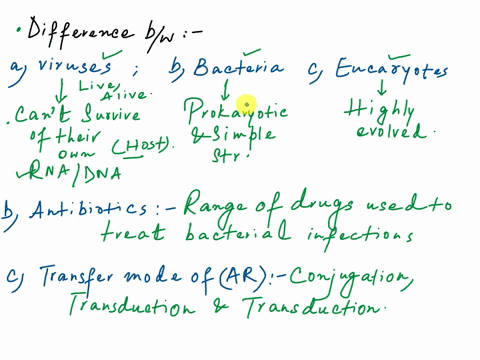 • Difference b/w :-
a, viruses ; b, Bacteria c, Eucaryotes
Live, Alive.
. Can't Survive of their own (Host).
RNA/DNA
Prokaryotic & Simple Str.
Highly evolved.
b, Antibiotics :- Range of drugs used to
treat bacterial infections
c, Transfer mode of (AR) :- Conjugation,
Transduction & Transduction.